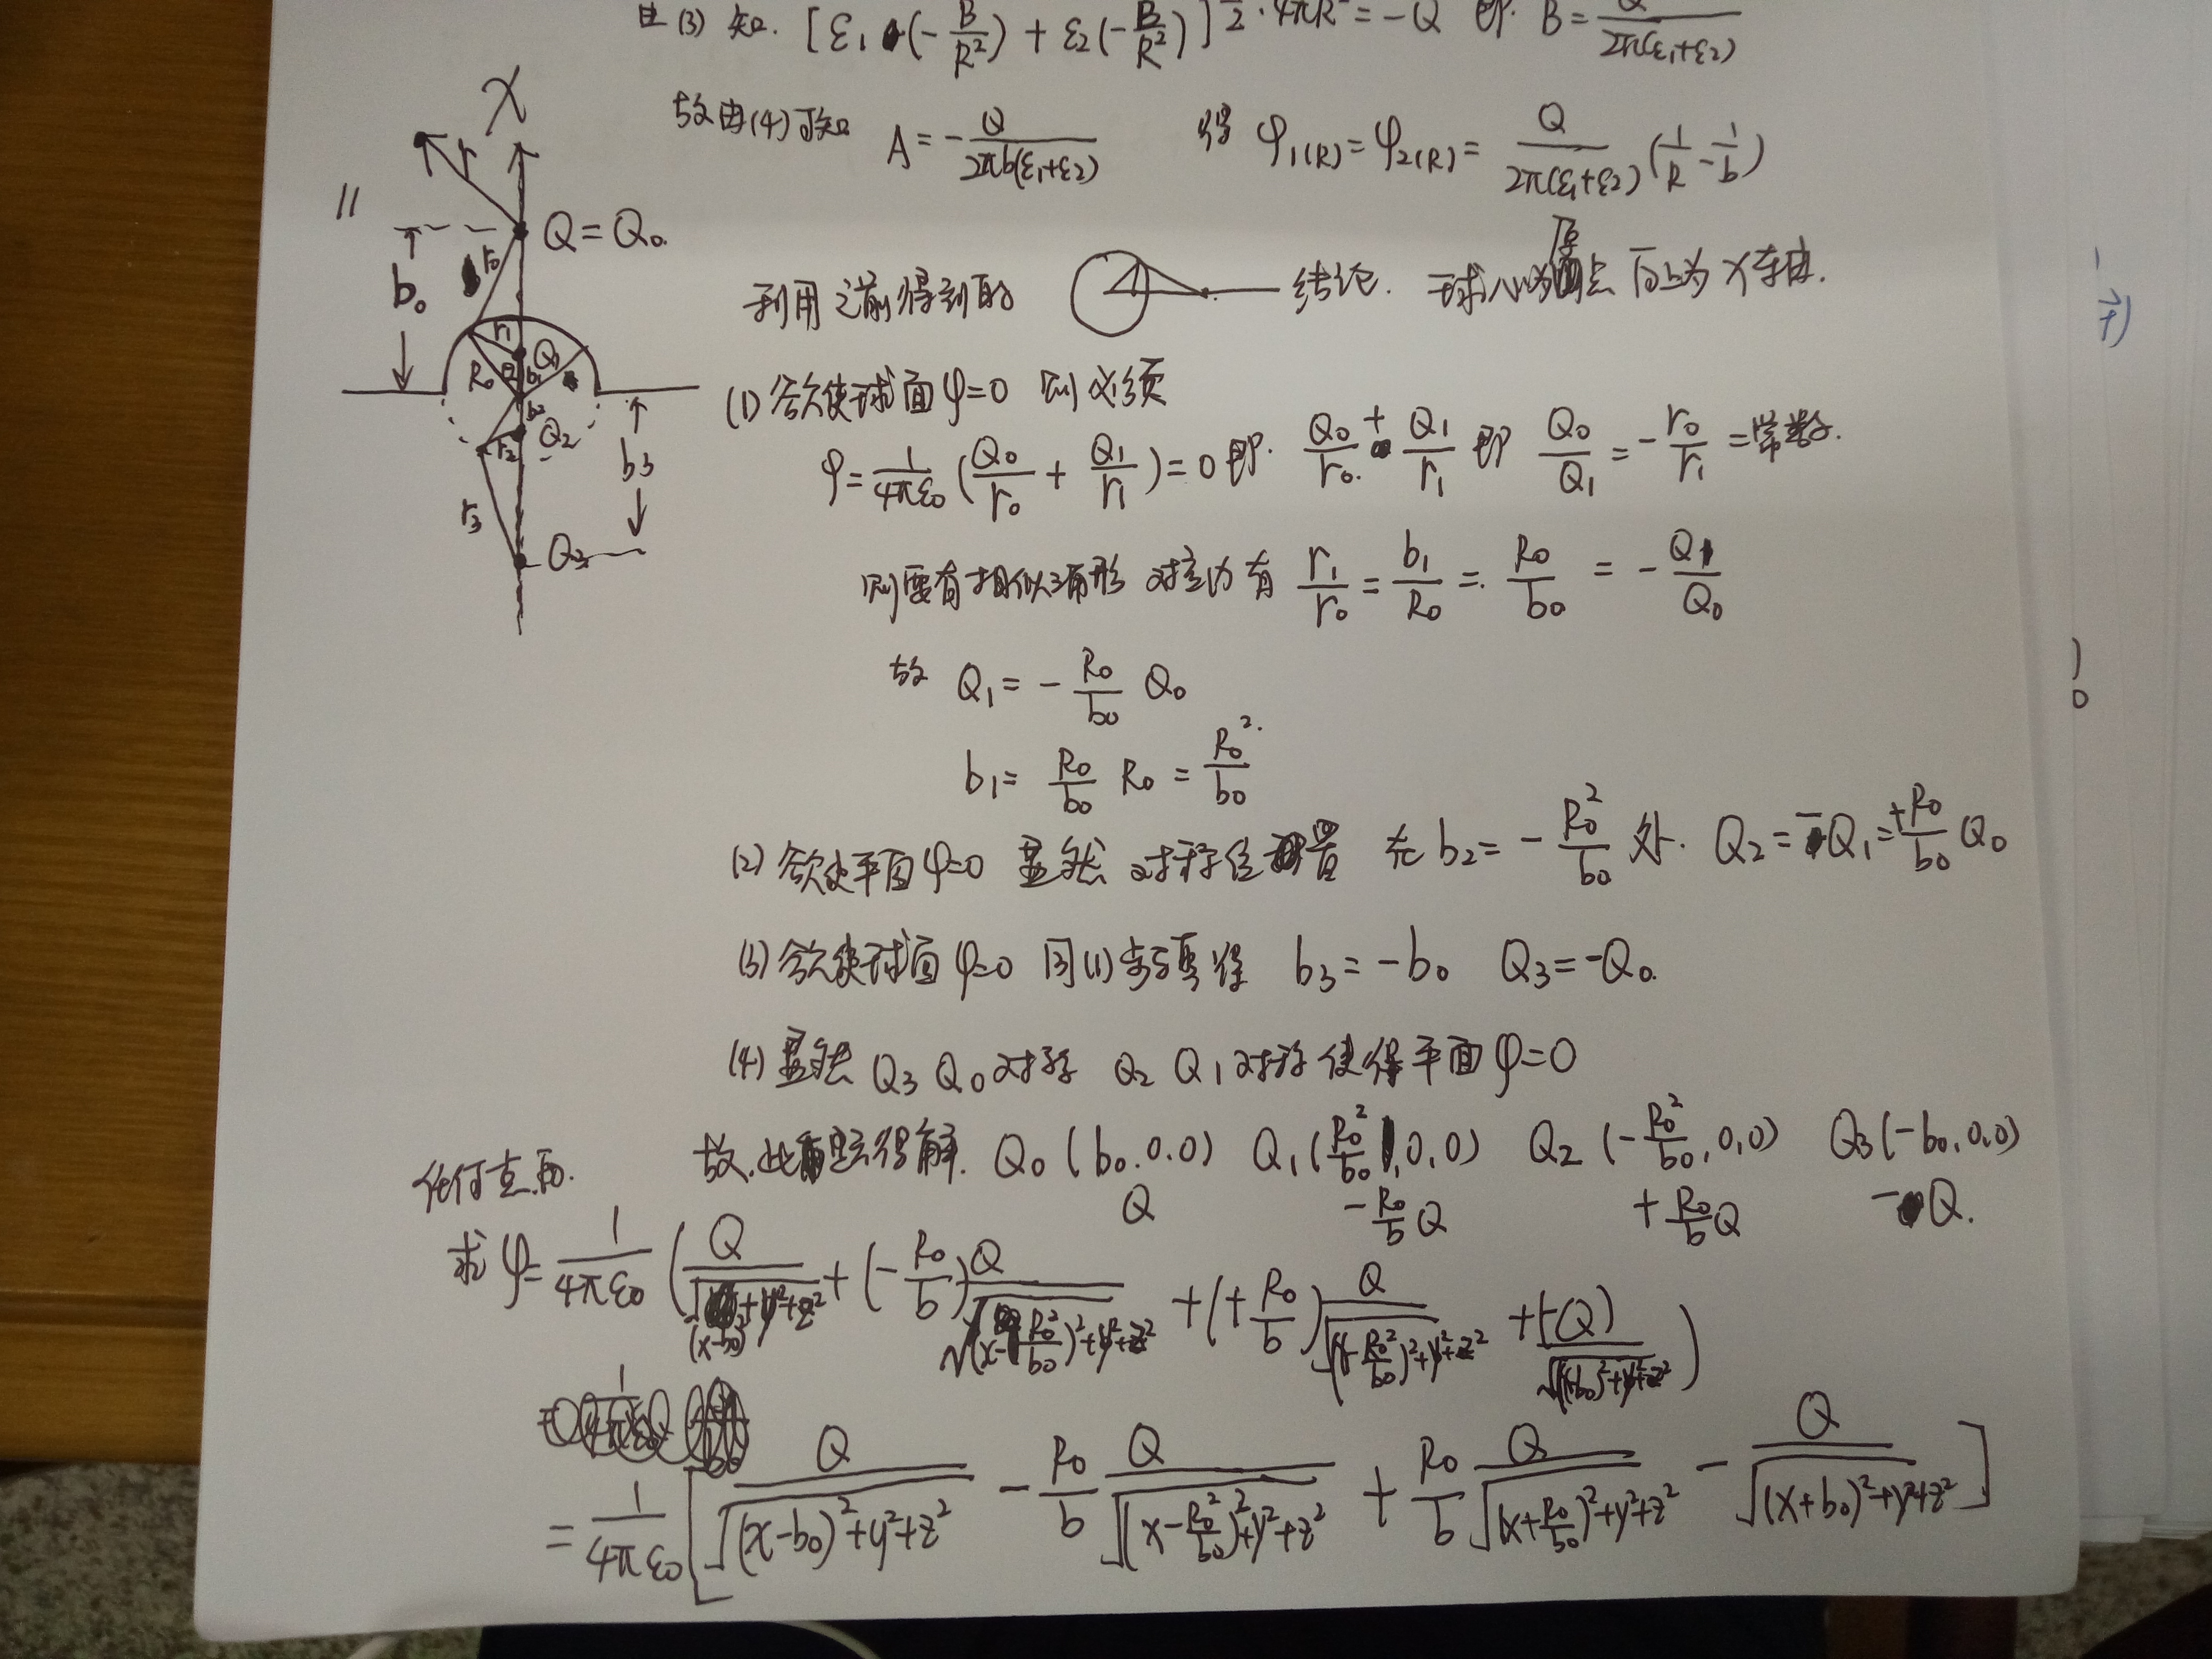 由(3)知. [ε₁(-B/R²) + ε₂(-B/R²)]½·4πR² = -Q 即 B = Q/2π(ε₁+ε₂)
故由(4)可知 A = -Q/2πb(ε₁+ε₂) 得 φ₁(R) = φ₂(R) = Q/2π(ε₁+ε₂) (1/R - 1/b)
11
X
r
Q = Q₀
r₀
b₀
r₁
Q₁
R₀
b₁
b₂
Q₂
r₂
b₃
r₃
Q₃
利用之前得到的 结论. 球心为原点 向上为X轴.
(1) 欲使球面φ=0 则必须
φ = 1/4πε₀ (Q₀/r₀ + Q₁/r₁) = 0 即. Q₀/r₀ + Q₁/r₁ 即 Q₀/Q₁ = -r₀/r₁ = 常数.
则要有相似三角形 对应边有 r₁/r₀ = b₁/R₀ = R₀/b₀ = -Q₁/Q₀
故 Q₁ = -R₀/b₀ Q₀
b₁ = R₀/b₀ R₀ = R₀²/b₀
(2) 欲使平面φ=0 显然 对称位置 在 b₂ = -R₀²/b₀ 处. Q₂ = -Q₁ = +R₀/b₀ Q₀
(3) 欲使球面φ=0 同(1)步骤得 b₃ = -b₀ Q₃ = -Q₀.
(4) 显然 Q₃ Q₀对称 Q₂ Q₁对称 使得平面φ=0
故.此题得解. Q₀(b₀.0.0) Q₁(R₀²/b₀,0,0) Q₂(-R₀²/b₀,0,0) Q₃(-b₀,0,0)
Q -R₀/b Q +R₀/b Q -Q.
任何点的.
求φ = 1/4πε₀ (Q/√(x-b₀)²+y²+z² + (-R₀/b)Q/√(x-R₀²/b₀)²+y²+z² + (+R₀/b)Q/√(-R₀²/b₀)²+y²+z² + (-Q)/√(+b₀)²+y²+z²)
= 1/4πε₀ [Q/√(x-b₀)²+y²+z² - R₀/b Q/√(x-R₀²/b₀)²+y²+z² + R₀/b Q/√(x+R₀/b₀)²+y²+z² - Q/√(x+b₀)²+y²+z²]